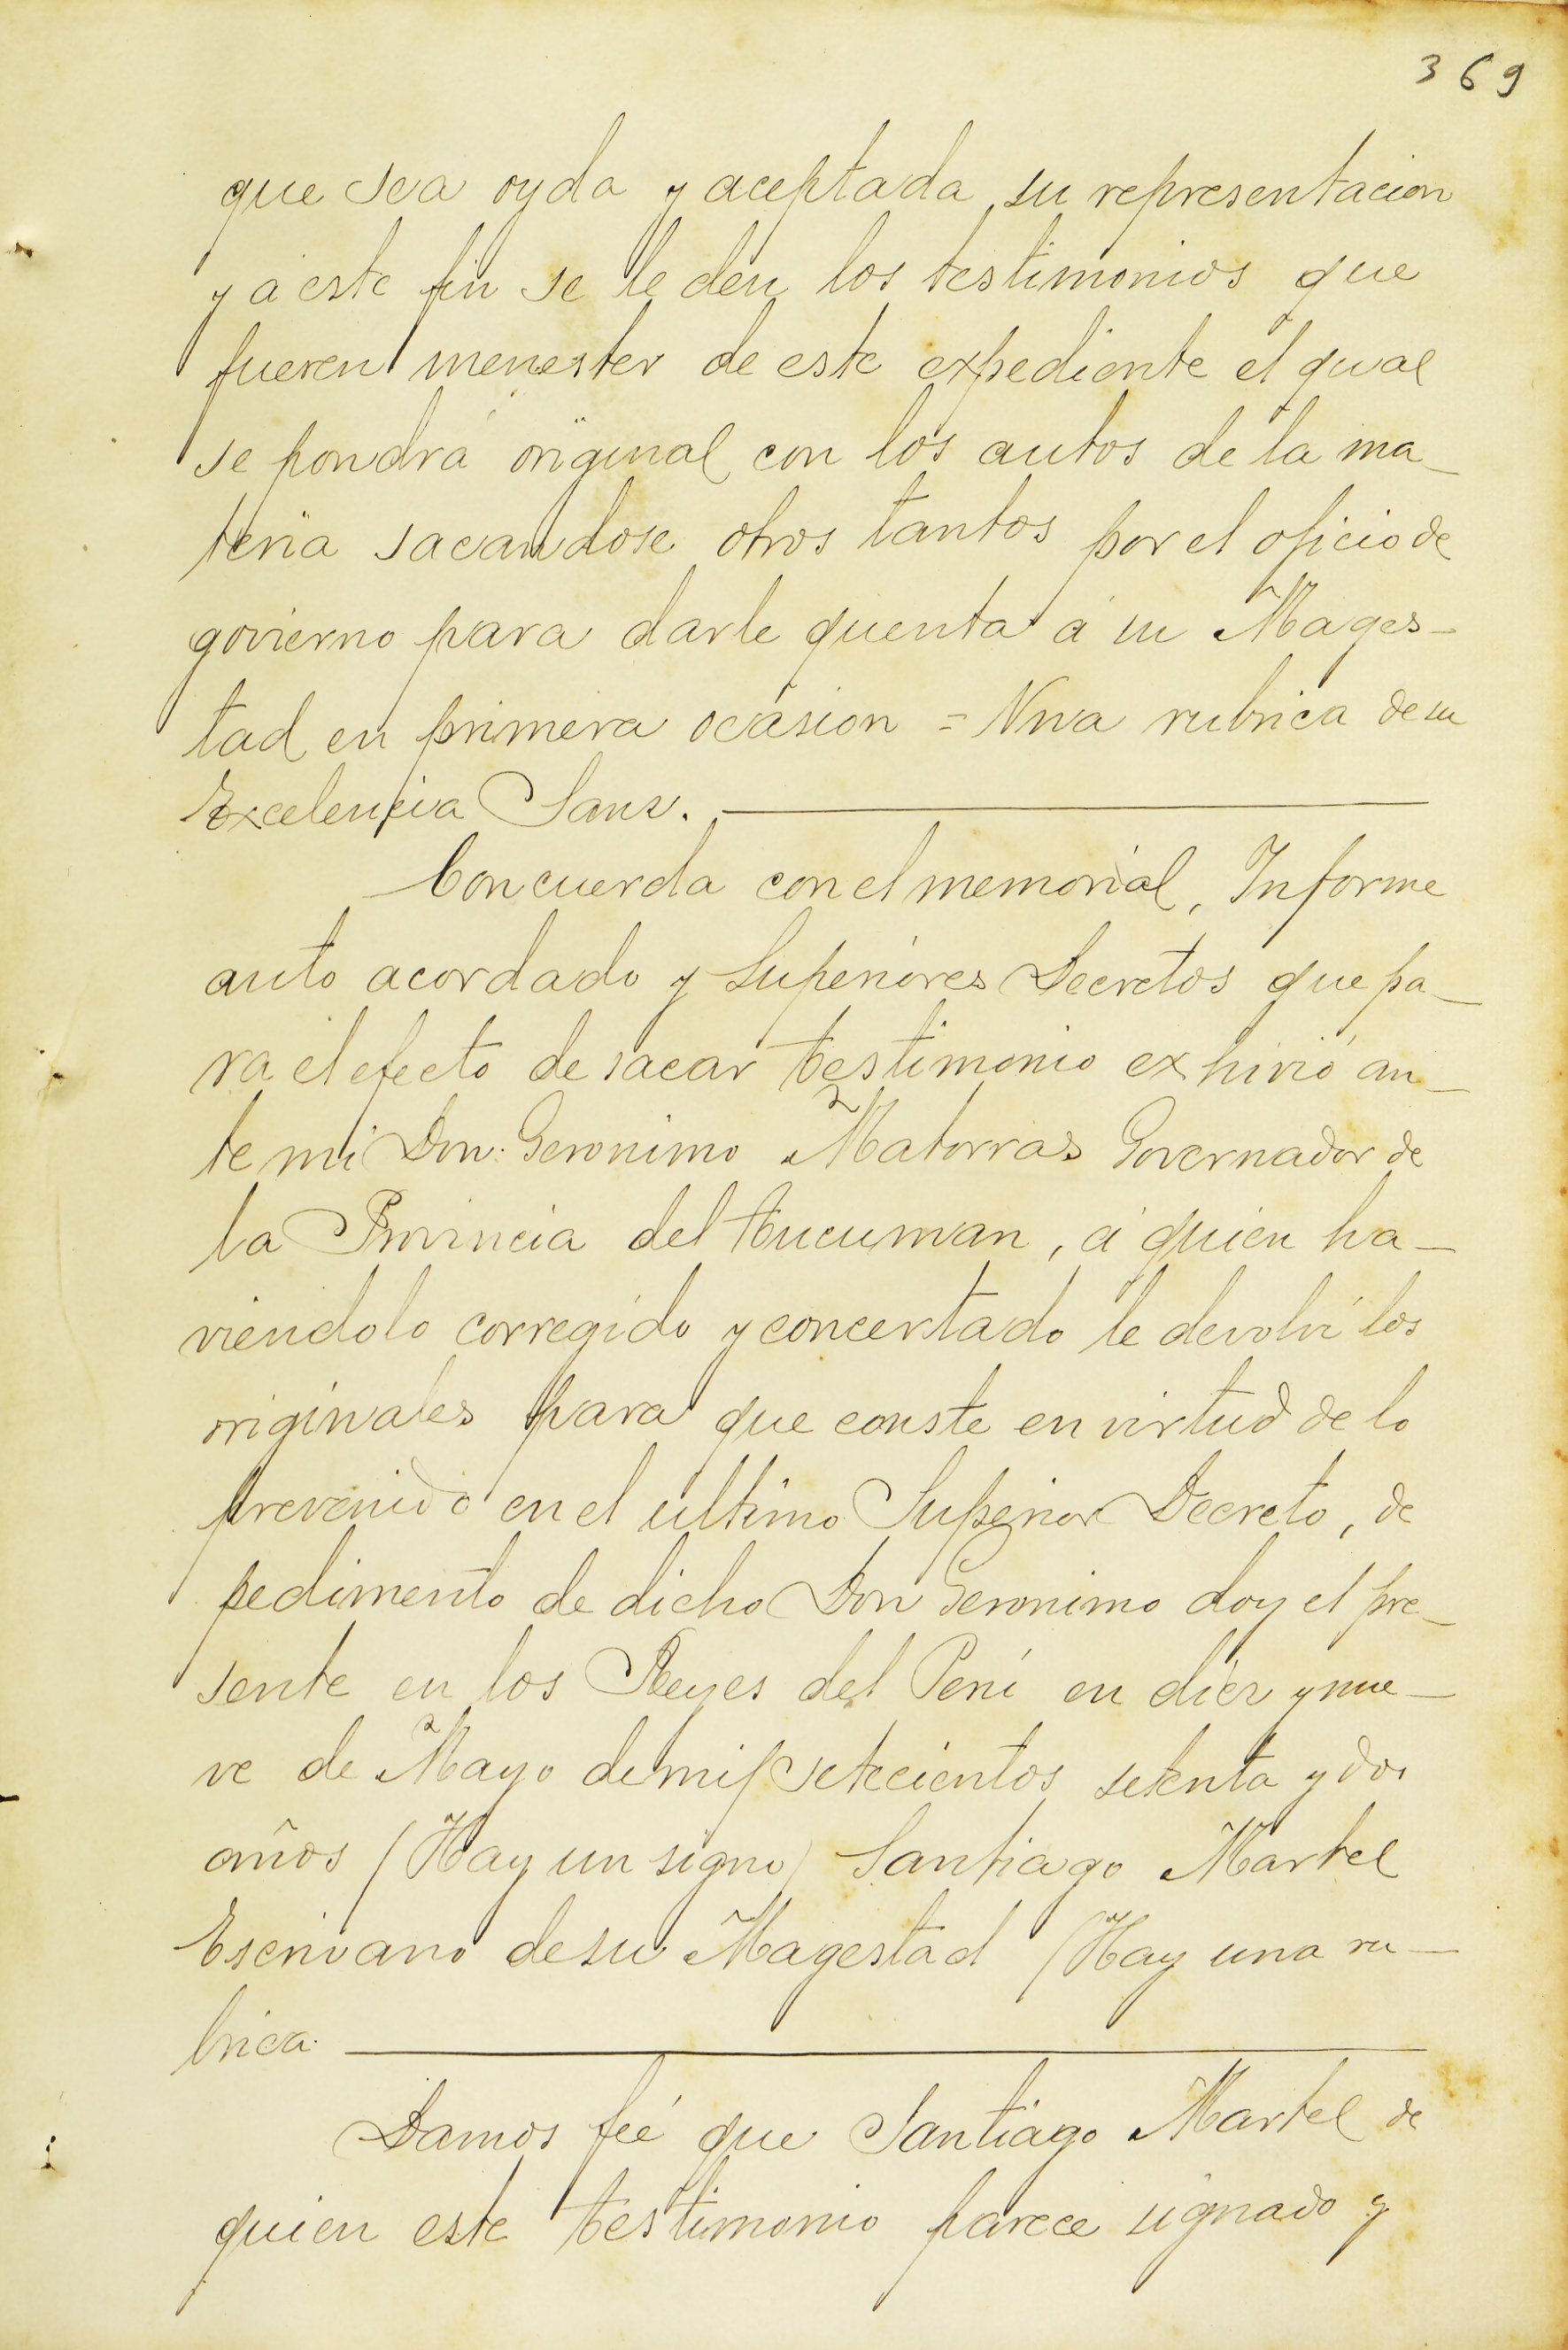 369
que sea oyda y aceptada su representacion
y á este fin se le den los testimonios que
fueren menester de este expediente el qual
se pondrá original con los autos de la ma_
teria sacandose otros tantos por el oficio de
govierno para darle quenta á su Mages_
tad en primera ocasion = Una rubrica de su
Excelencia Sanz.
Concuerda con el memorial, Informe
auto acordado y Superiores Decretos que pa_
ra el efecto de sacar testimonio exhivió an_
te mi Don Geronimo Matorras Governador de
la Provincia del tucuman, á quien ha_
viendolo corregido y concertado le devolvi los
originales para que conste en virtud de lo
prevenido en el ultimo Superior Decreto, de
pedimento de dicho Don Geronimo doy el pre_
sente en los Reyes del Perú en diez y nue_
ve de Mayo de mil setecientos setenta y dos
años (Hay un signo) Santiago Martel
Escrivano de su Magestad (Hay una ru_
brica.
Damos feé que Santiago Martel de
quien este testimonio parece signado y